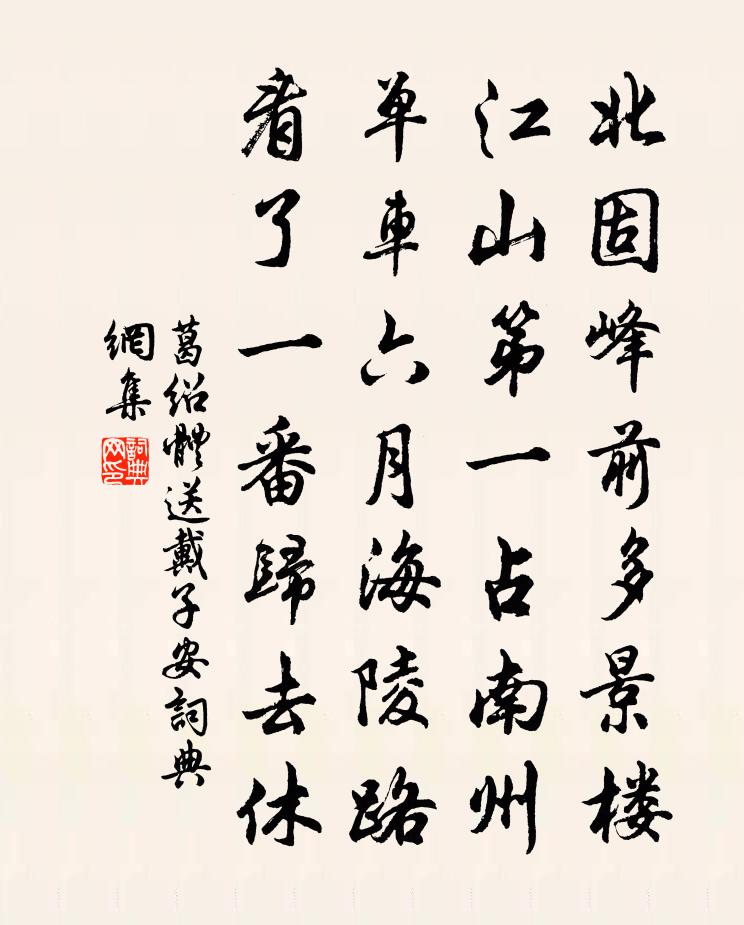 北固峰前多景楼
江山第一占南州
单車六月海陵路
看了一番歸去休
葛绍體送戴子安詞典
網集
詞典網印